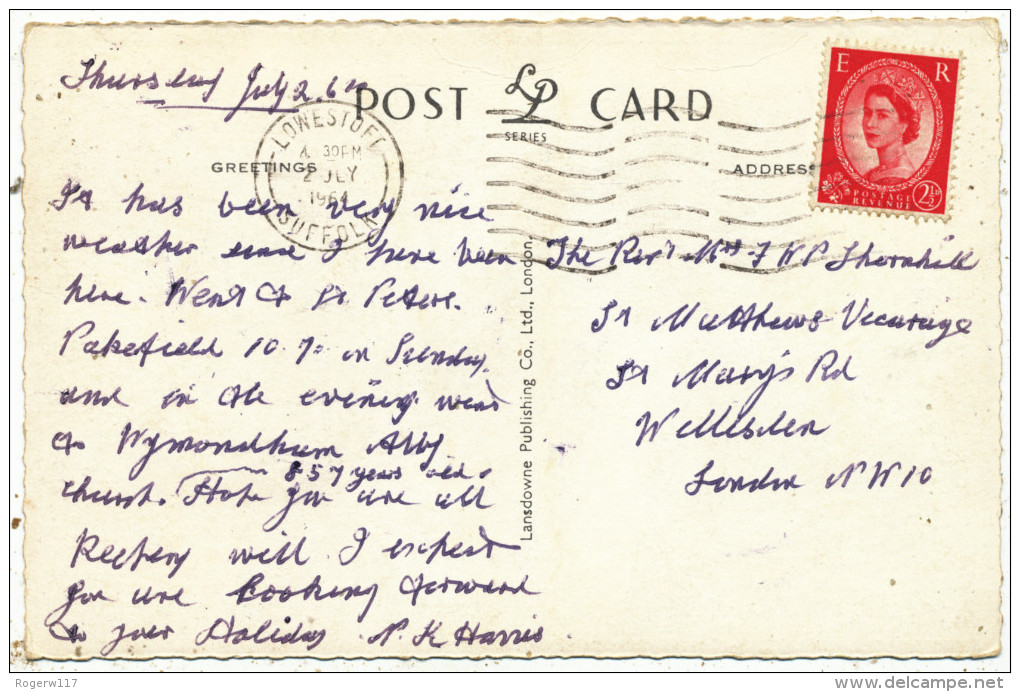 Thursday July 2. 64
POST CARD
LP
SERIES
GREETINGS
ADDRESS
LOWESTOFT
4 30PM
2 JLY
1964
SUFFOLK
E R
POSTAGE
REVENUE
2½D
It has been very nice
weather since I have been
here. Went to St Peters.
Pakefield 10.70 on Sunday.
and in the evening went
to Wymondham Abby
857 years old.
church. Hope you are all
keeping well I expect
you are looking forward
to your Holiday N. K Harris.
Lansdowne Publishing Co., Ltd., London.
The Revd Mrs F W P Thornhill
St Matthews Vicarage
St Mary's Rd
Willesden
London N W 10
Rogerw117
delcampe.net